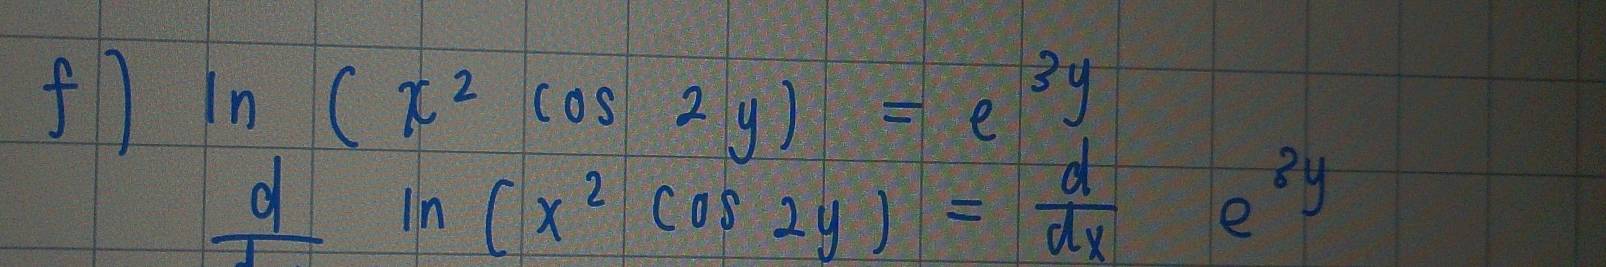 f) ln (x² cos 2y) = e^{3y}
d/d ln (x² cos 2y) = d/dx e^{3y}